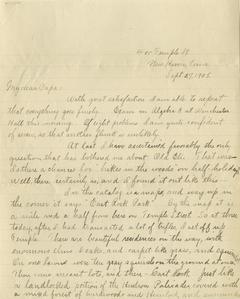 Temple St.
New Haven, Conn.
Sept. 29, 1905
My dear Papa:
With great satisfaction I am able to report
that everything goes finely. Exam in Algebra B at Winchester
Hall this morning. Of eight problems I am quite confident
of seven, so that another flunk is unlikely.
At last I have ascertained favorably the only
question that has bothered me about Old Eli. That was
is there a chance for hikes in the woods on half holidays?
Well, there certainly is, and I found it out like this
In the catalog is a map, and way up in
the corner it says "East Rock Park". By the map it is
a mile and a half from here on Temple Street. So at three
today, after I had transacted a lot of biz, I set off up
Temple. There are beautiful residences on the way, with
enormous elms beside, and maples like grass, and
on one lawn were ten gray squirrels on the ground at once.
Then came vacant lots, and then East Rock just like
a landlocked portion of the Hudson Palisades covered with
a mixed forest of hardwoods and Hemlock, and